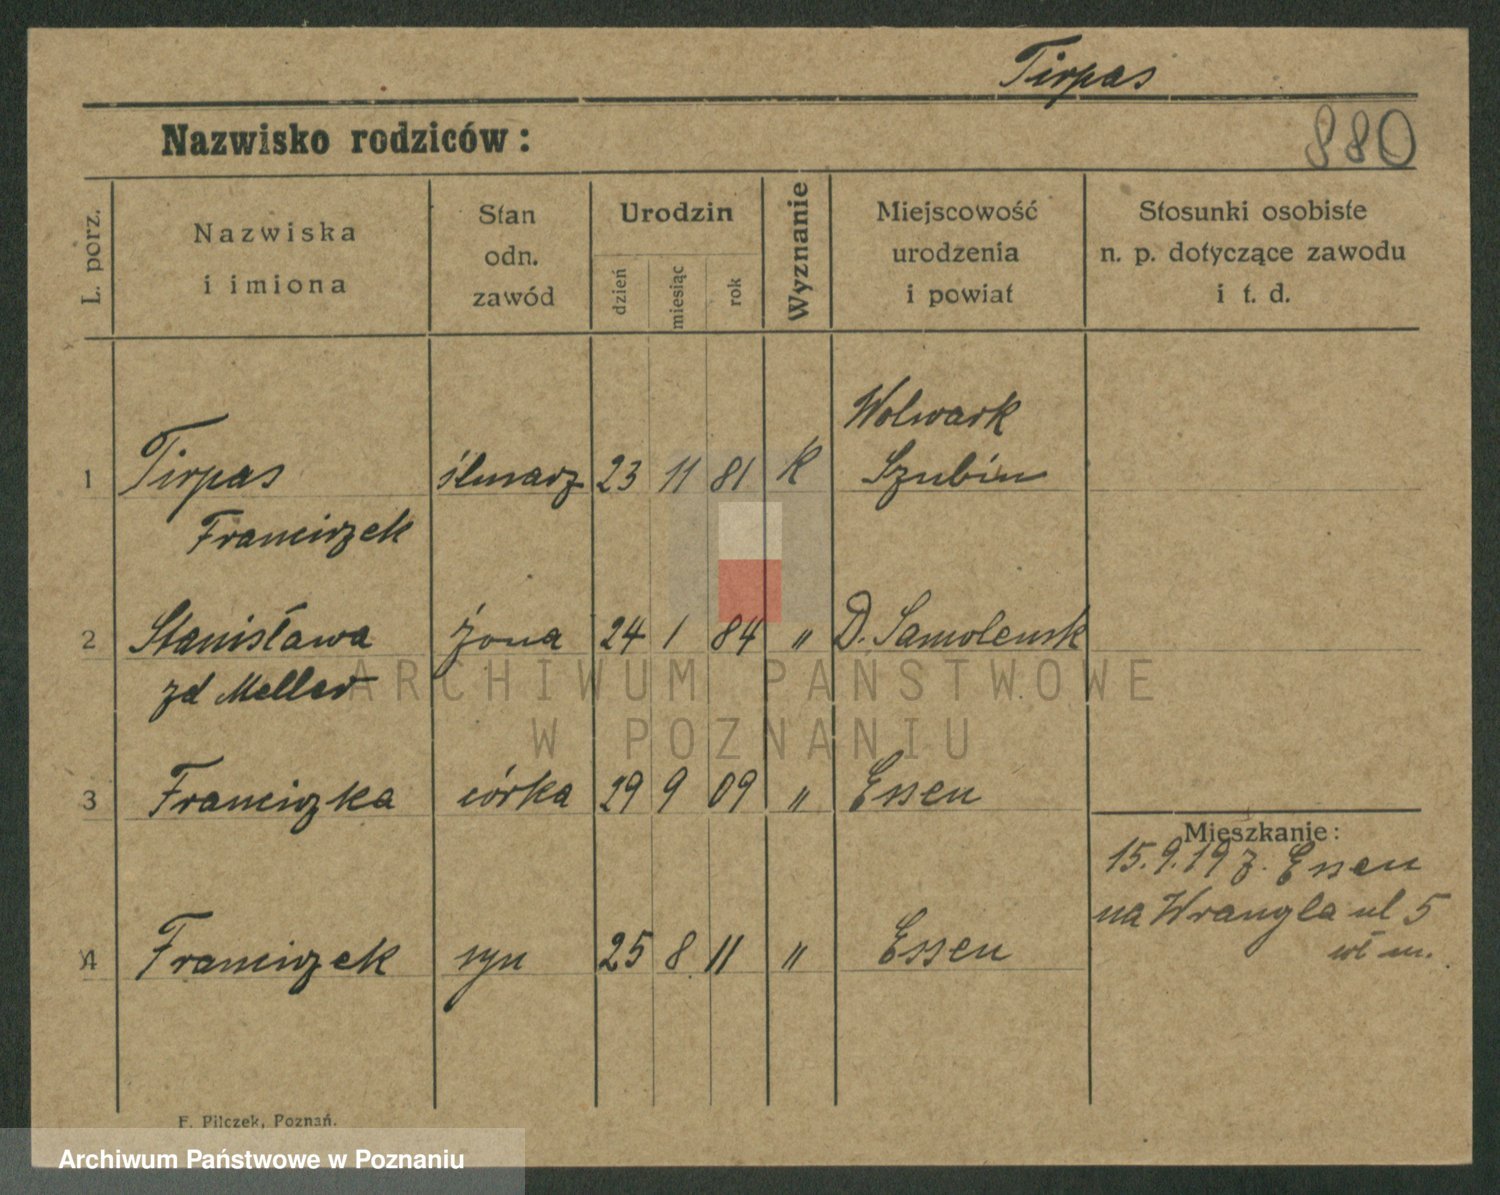 Tirpas
Nazwisko rodziców:
880
L. porz.
Nazwiska
i imiona
Stan
odn.
zawód
Urodzin
dzień
miesiąc
rok
Wyznanie
Miejscowość
urodzenia
i powiat
Stosunki osobiste
n. p. dotyczące zawodu
i t. d.
Wolwark
1 Tirpas ślusarz 23 11 81 K Szubin
Franciszek
2 Stanisława żona 24 1 84 " D. Samolensk
zd Meller
ARCHIWUM PAŃSTWOWE
W POZNANIU
3 Franciszka córka 29 9 09 " Essen
Mieszkanie:
15.9.19 z. Essen
na Wrangla ul 5
4 Franciszek syn 25 8 11 " Essen
wł m.
F. Pilczek, Poznań.
Archiwum Państwowe w Poznaniu